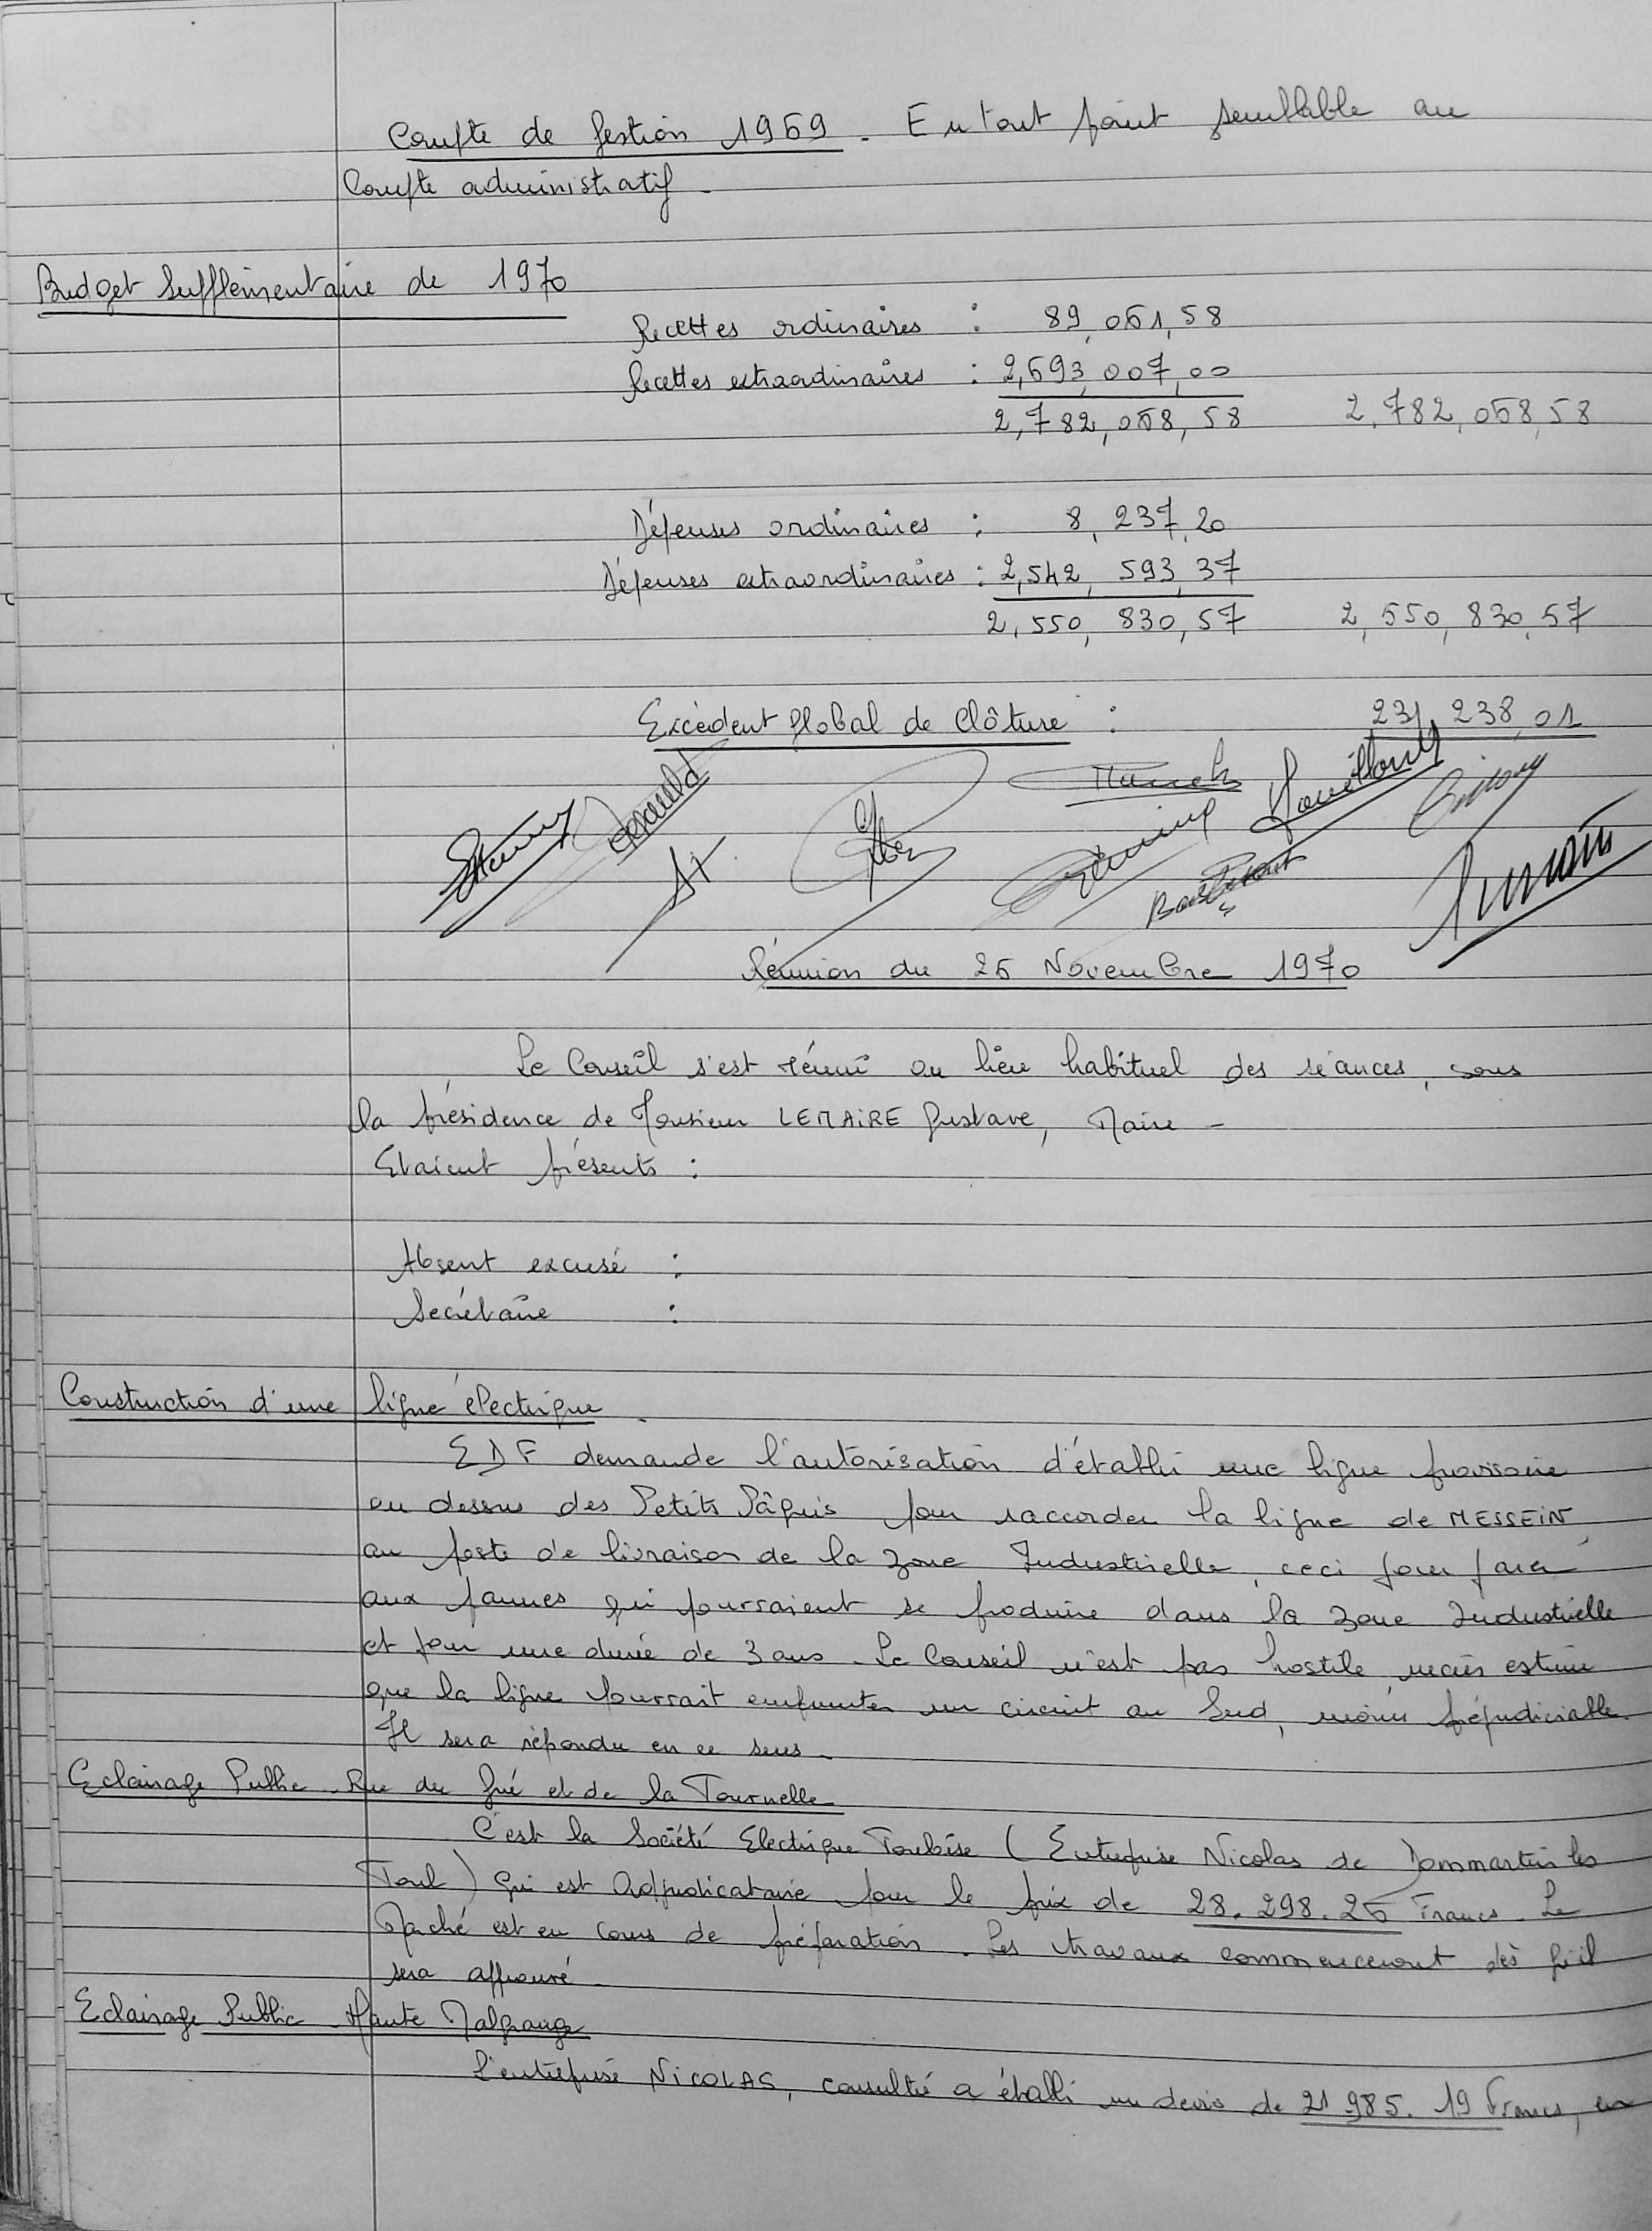 Compte de Gestion 1969 - En tout point semblable au
Compte administratif -
Budget Supplémentaire de 1970
Recettes ordinaires : 89,061,58
Recettes extraordinaires : 2,693,007,00
2,782,068,58 2,782,068,58
Dépenses ordinaires : 8,237,20
Dépenses extraordinaires : 2,542,593,37
2,550,830,57 2,550,830,57
Excédent global de Clôture : 231,238,01
Réunion du 26 Novembre 1970
Le Conseil s'est réuni au lieu habituel des séances, sous
la présidence de Monsieur LEMAIRE Gustave, Maire -
Etaient présents :
Absent excusé :
Secrétaire :
Construction d'une ligne électrique -
EDF demande l'autorisation d'établir une ligne provisoire
au dessus des Petits Pâquis pour raccorder la ligne de MESSEIN
au poste de livraison de la zone Industrielle, ceci pour parer
aux pannes qui pourraient se produire dans la zone Industrielle
et pour une durée de 3 ans - Le Conseil n'est pas hostile, mais estime
que la ligne pourrait emprunter un circuit au Sud, moins préjudiciable.
Il sera répondu en ce sens -
Eclairage Public - Rue du Gué et de la Tournelle
C'est la Société Electrique Touloise (Entreprise Nicolas de Dommartin les
Toul) qui est Adjudicataire pour le prix de 28.298.26 Francs. Le
Marché est en cours de préparation. Les travaux commenceront dès qu'il
sera approuvé -
Eclairage Public - Haute Malgrange
L'entreprise NICOLAS, consultée a établi un devis de 21.985.19 Francs, en